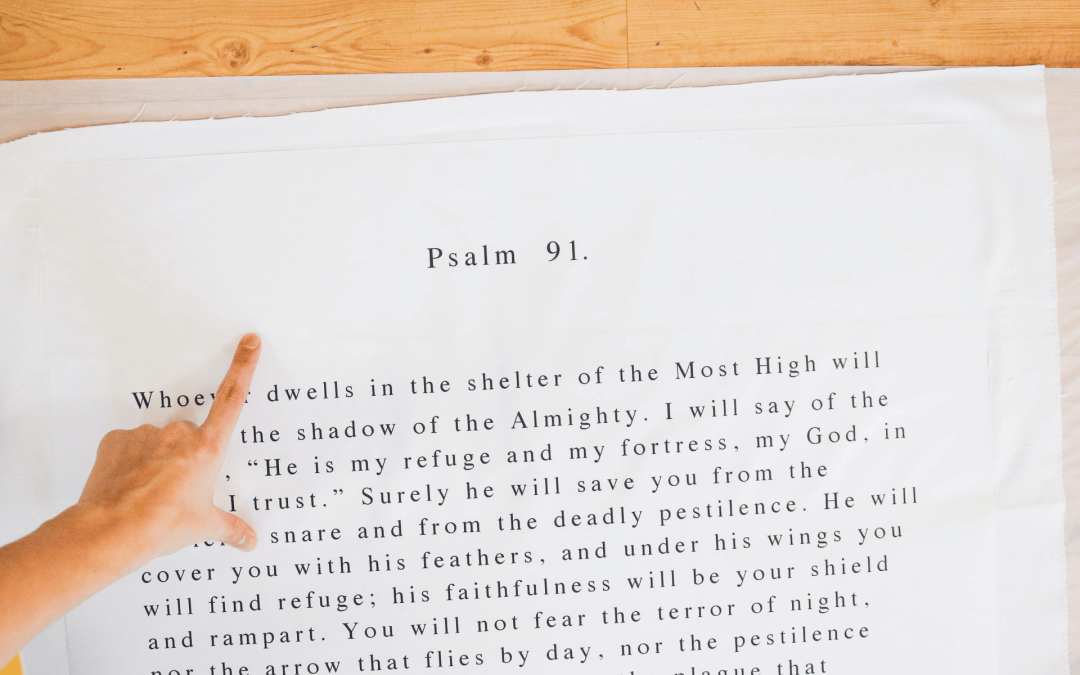 Psalm 91.
dwells in the shelter of the Most High will
the shadow of the Almighty. I will say of the
, “He is my refuge and my fortress, my God, in
I trust.” Surely he will save you from the
snare and from the deadly pestilence. He will
cover you with his feathers, and under his wings you
will find refuge; his faithfulness will be your shield
and rampart. You will not fear the terror of night,
nor the arrow that flies by day, nor the pestilence
plague that